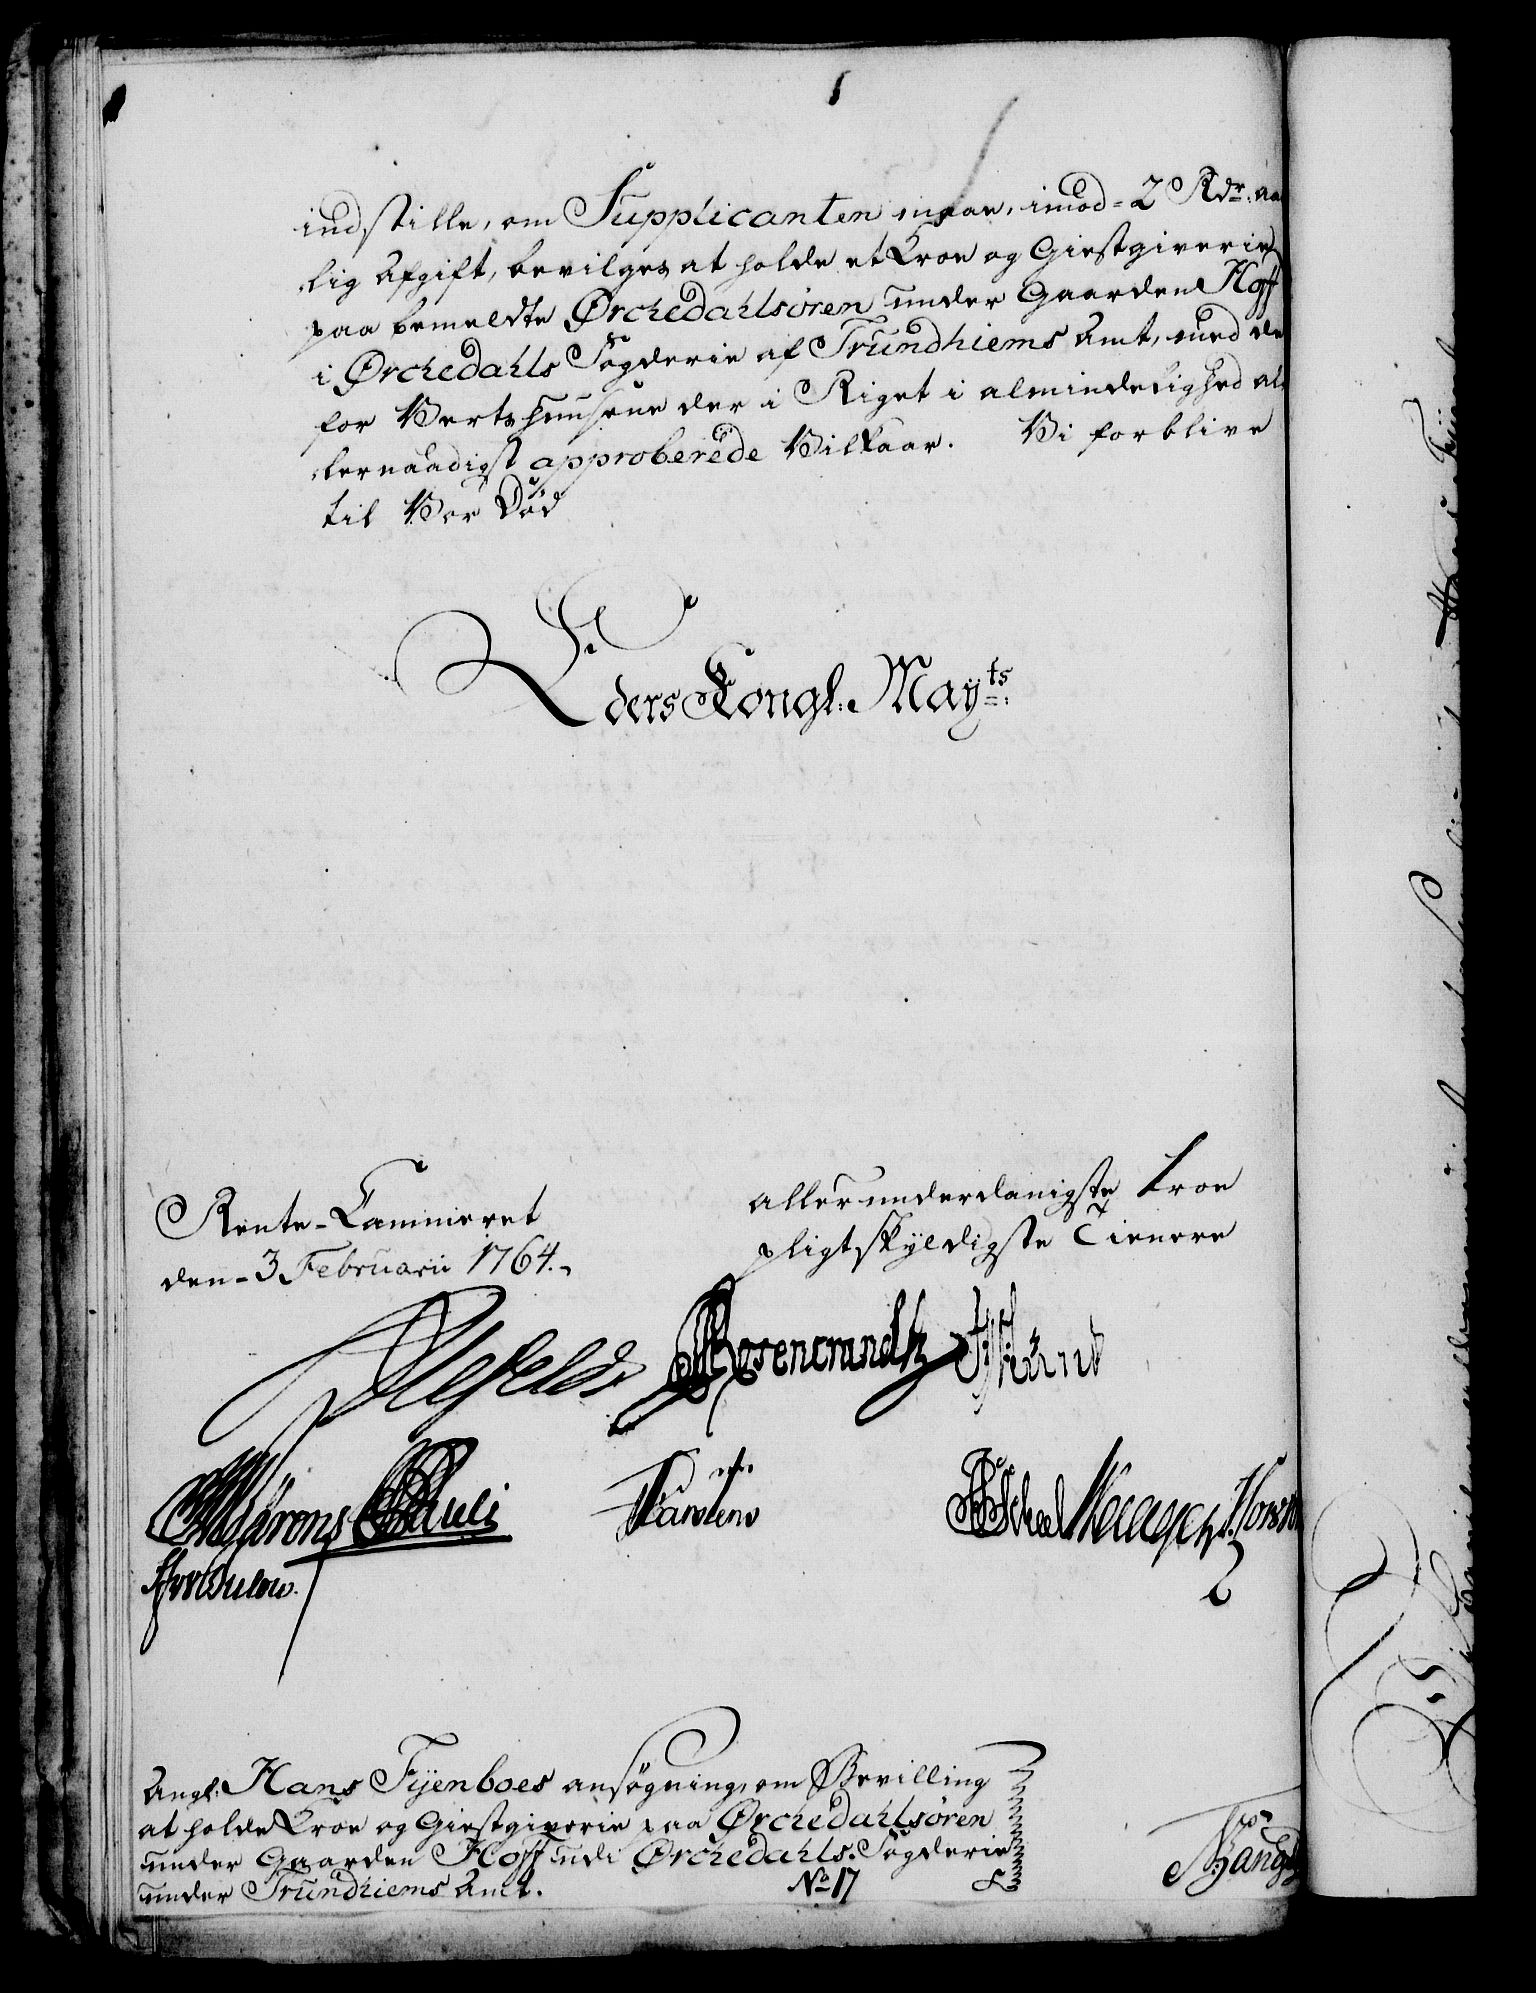 indstille, om Supplicanten maae, imod 2 Rdr. aa
lig Afgift, bevilges at holde et Kroe og Giestgiverie
paa bemeldte Ørchedahlsøren under Gaarden Hoff
i Ørchedahls Fogderie af Trundhiems Amt, med de
for Vertshuusene der i Riget i almindelighed al
lernaadigst approberede Vilkaar. Vi forblive
til Vor Død
Eders Kongl: Mayts:
Rente-Cammeret
den 3 Februarii 1764.
allerunderdanigste troe
pligtskyldigste Tienere
Ahlefeldt Rosencrandtz
Pauli Karstens Scheel
Angl: Hans Fyenboes ansøgning, om Bevilling
at holde Kroe og Giestgiverie paa Ørchedahlsøren
under Gaarden Hoff udi Ørchedahls Fogderie
under Trundhiems Amt. No 17
Bang